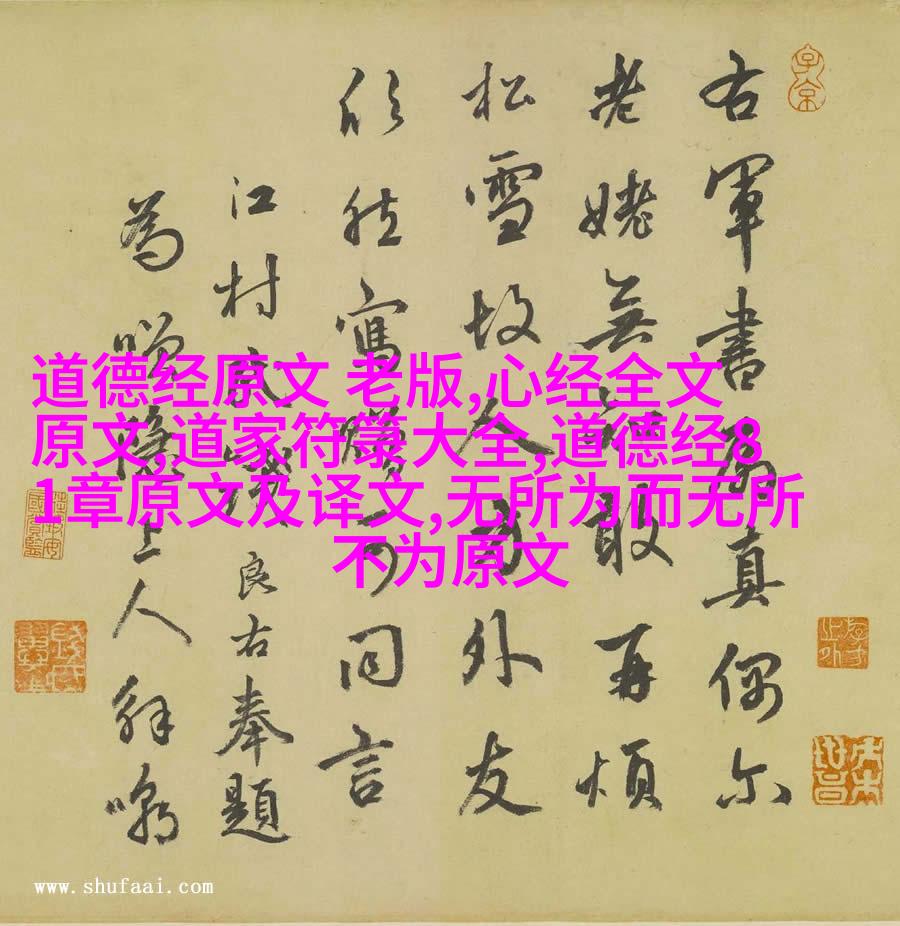 道德经原文 老版,心经全文
原文,道家符箓大全,道德经8
1章原文及译文,无所为而无所
不为原文
右軍書扇真偶尔
老姥無敢再煩
松雪故人方外友
欣然寫可同言
江村良右奉題
為上人解嘲
www.shufaai.com